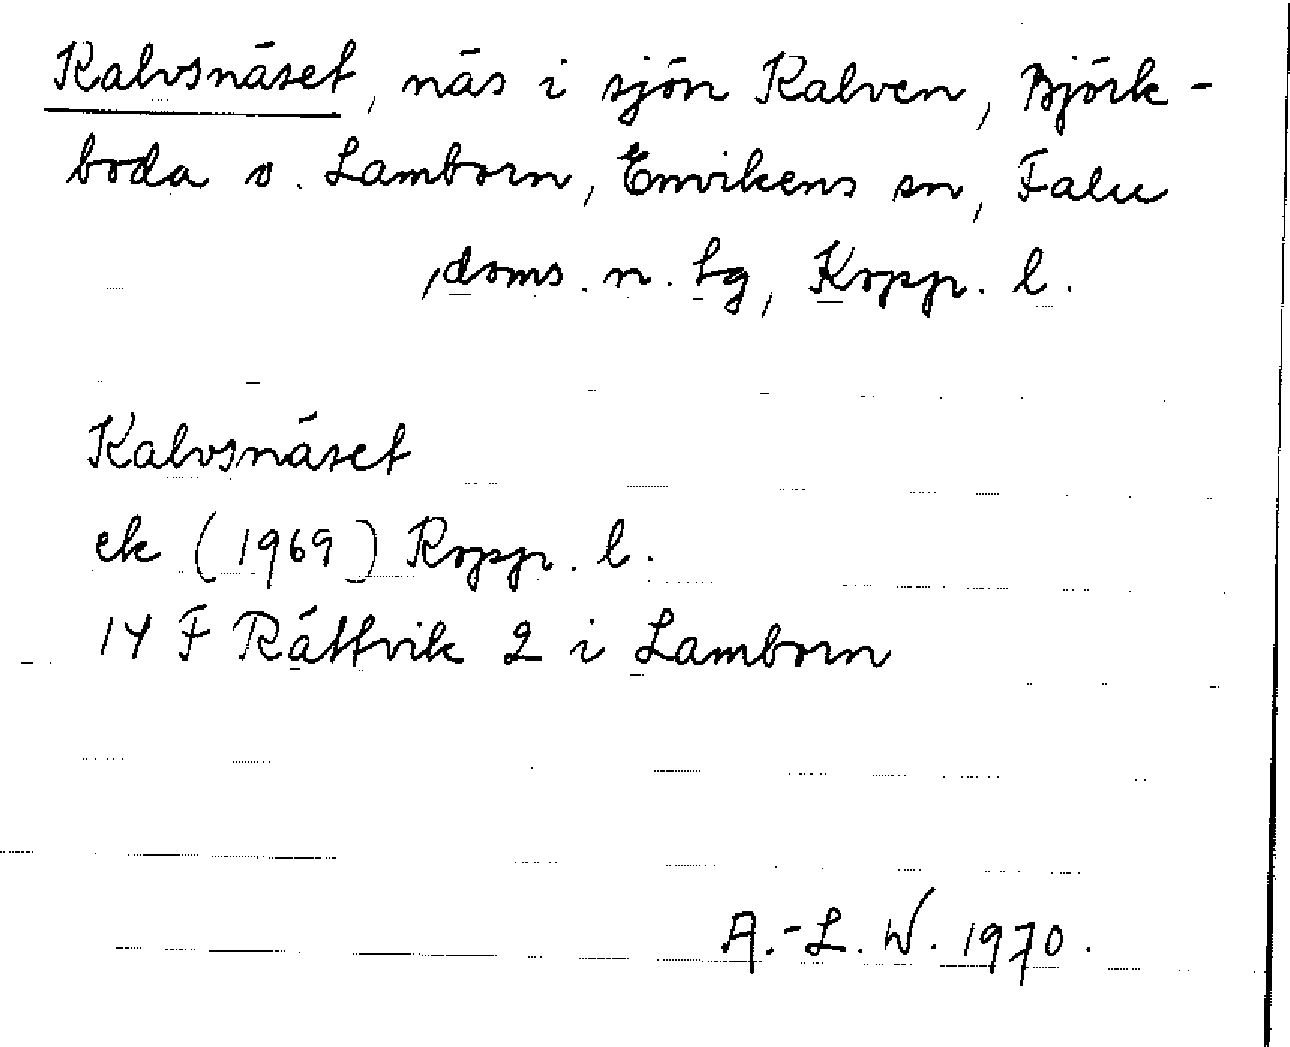 Kalvsnäset, näs i sjön Kalven, Björk-
boda o. Lamborn, Envikens sn, Falu
doms. n. tg, Kopp. l.
Kalvsnäset
ek (1969) Kopp. l.
14 F Rättvik 2 i Lamborn
A.-L. W. 1970.